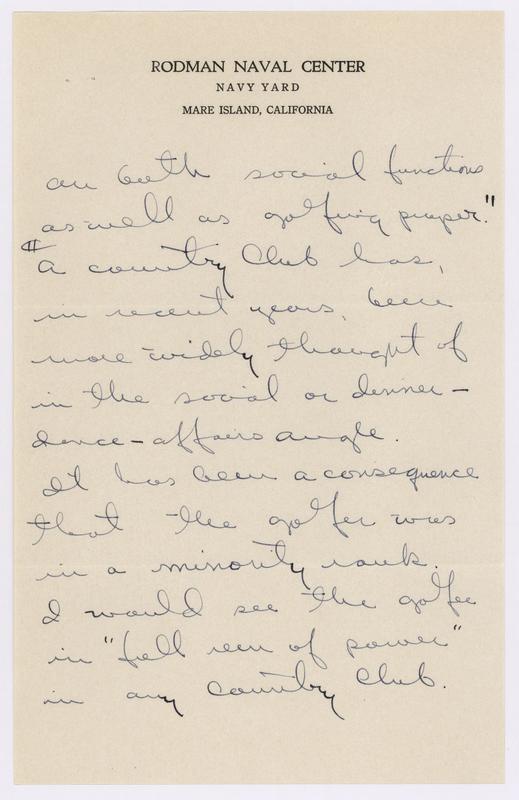 RODMAN NAVAL CENTER
NAVY YARD
MARE ISLAND, CALIFORNIA
on both social functions
as well as golfing proper."
"A country Club has,
in recent years, been
more widely thought of
in the social or dinner-
dance-affairs angle.
It has been a consequence
that the golfer was
in a minority rank.
I would see the golfer
in "full reen of power"
in any country Club.